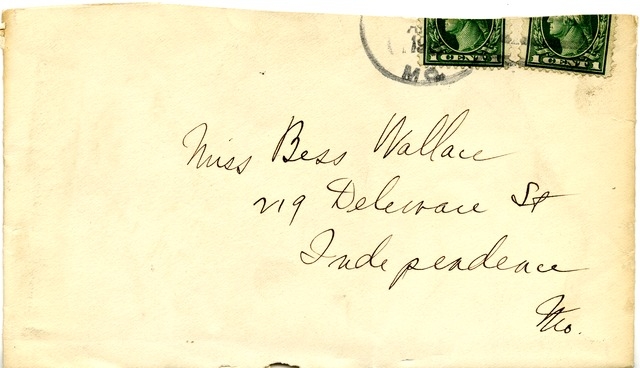 MO.
1 CENT 1
1 CENT 1
Miss Bess Wallace
219 Deleware St
Independence
Mo.